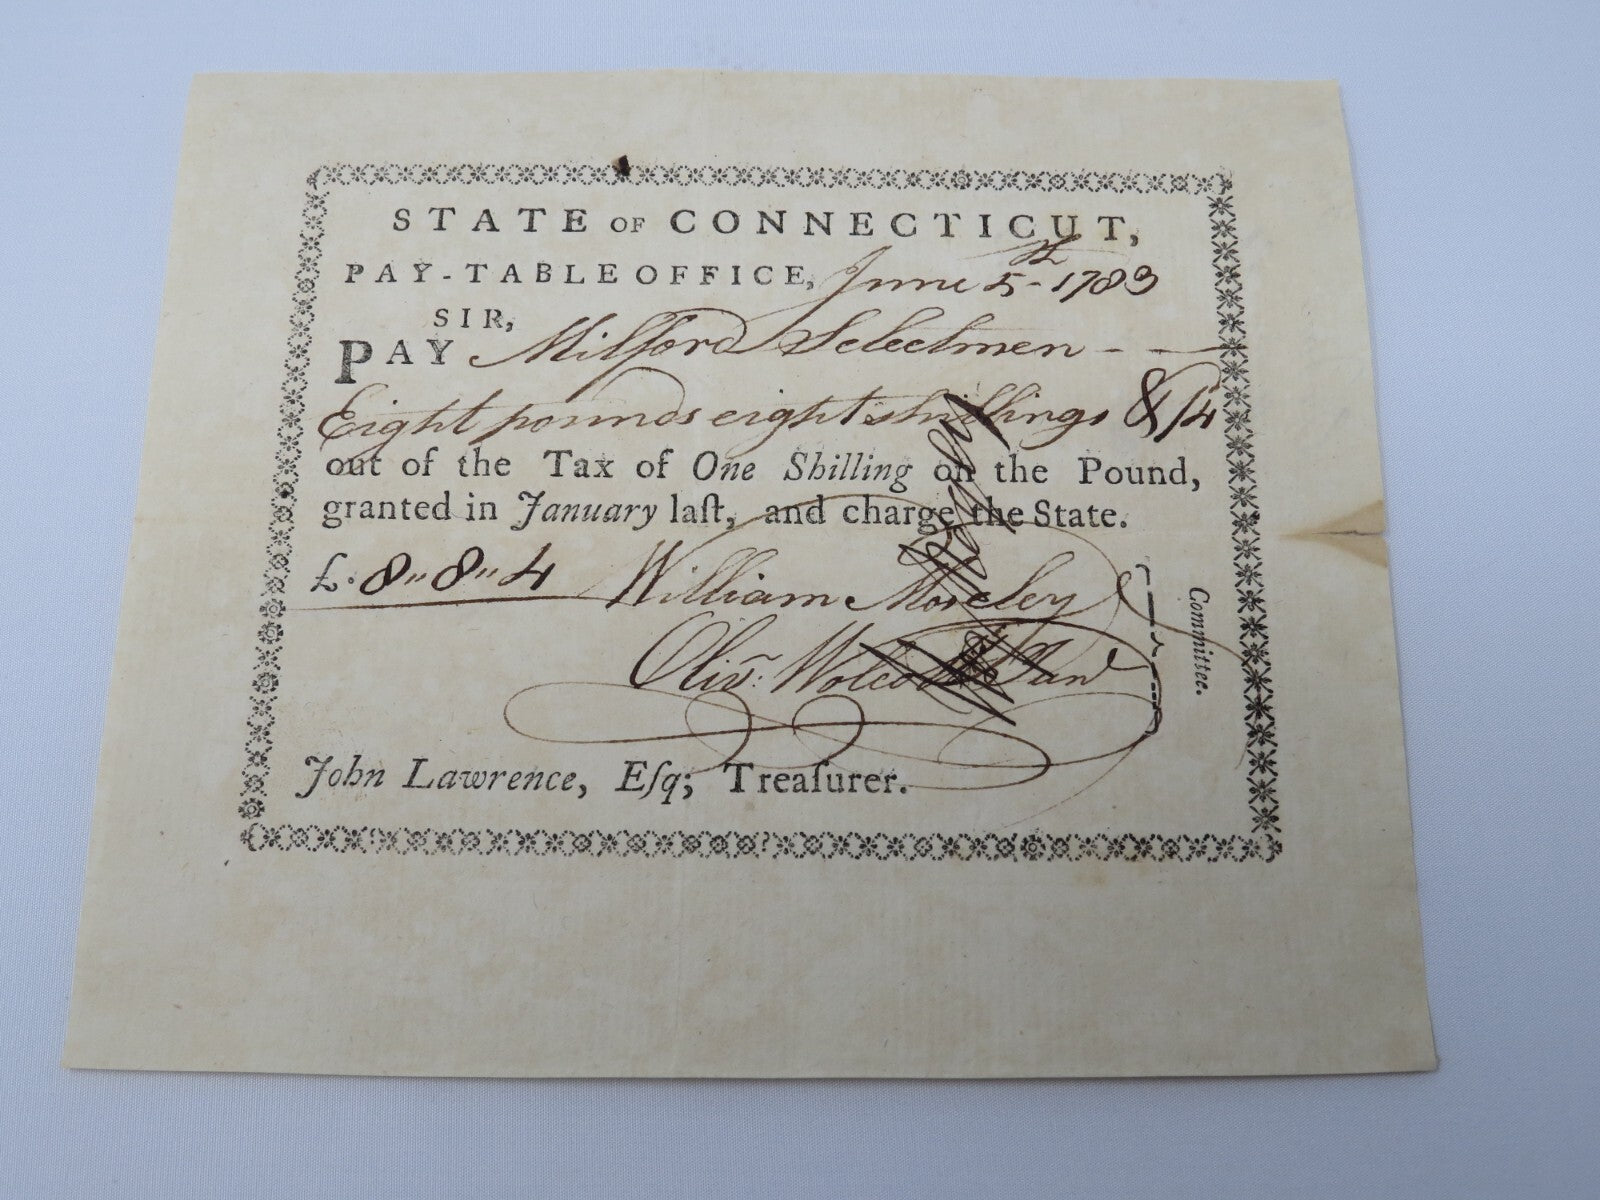 STATE OF CONNECTICUT,
PAY-TABLE OFFICE, June 5th 1783
SIR,
PAY Milford Selectmen
Eight pounds eight shillings & /4
out of the Tax of One Shilling on the Pound,
granted in January laſt, and charge the State.
£. 8" 8" 4 William Moseley
Olivr: Wolcott Junr
Committee.
John Lawrence, Eſq; Treaſurer.